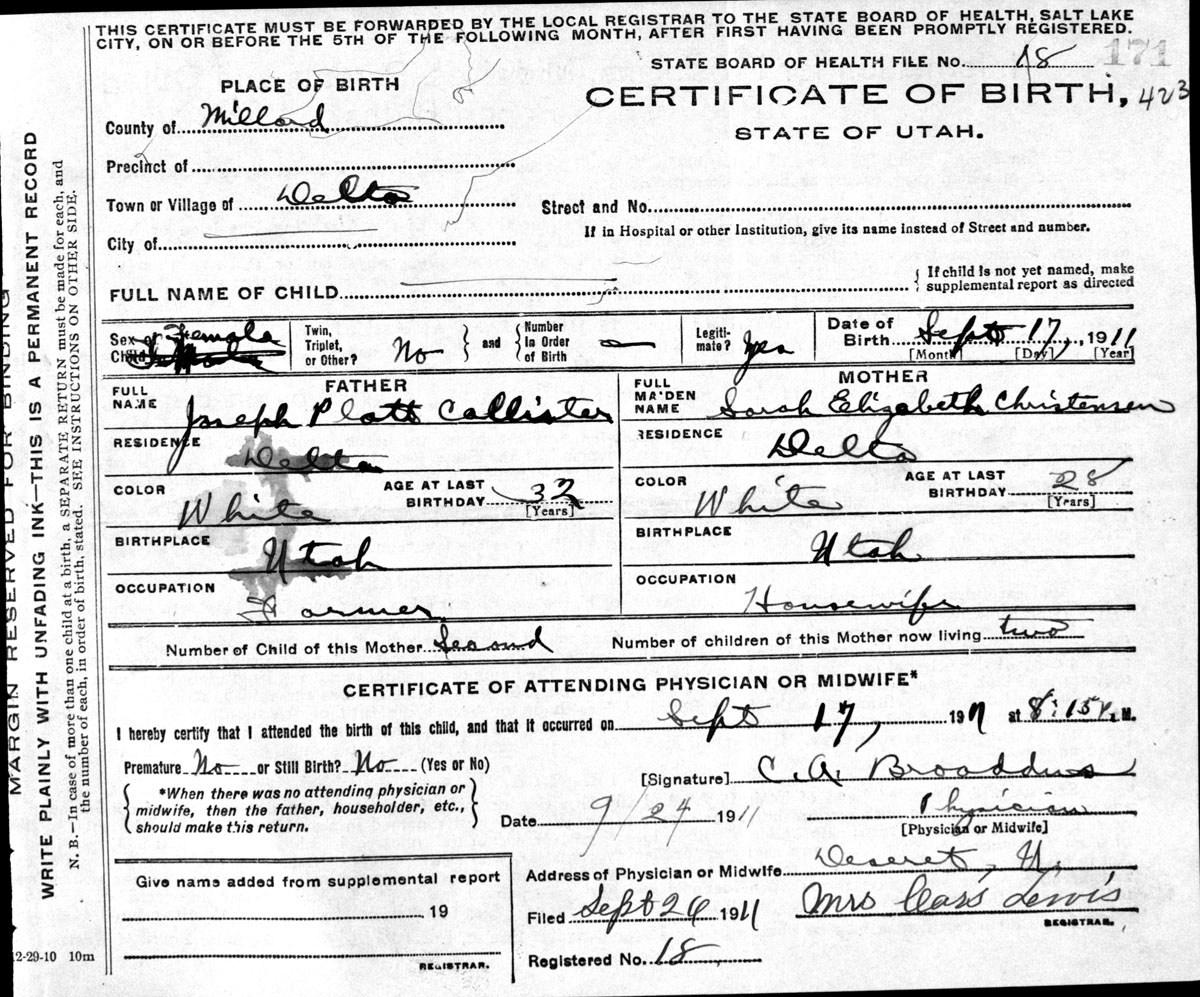 THIS CERTIFICATE MUST BE FORWARDED BY THE LOCAL REGISTRAR TO THE STATE BOARD OF HEALTH, SALT LAKE
CITY, ON OR BEFORE THE 5TH OF THE FOLLOWING MONTH, AFTER FIRST HAVING BEEN PROMPTLY REGISTERED.
STATE BOARD OF HEALTH FILE No. 18 171
PLACE OF BIRTH
CERTIFICATE OF BIRTH, 423
STATE OF UTAH.
County of Millard
Precinct of
Town or Village of Delta
Street and No.
City of
If in Hospital or other Institution, give its name instead of Street and number.
FULL NAME OF CHILD
If child is not yet named, make
supplemental report as directed
Sex of Child Female
Twin, Triplet, or Other? No and Number In Order of Birth
Legiti-mate? Yes
Date of Birth Sept 17, 1911
[Month] [Day] [Year]
FATHER
FULL NAME Joseph Platt Callister
RESIDENCE Delta
COLOR White
AGE AT LAST BIRTHDAY 32
[Years]
BIRTHPLACE Utah
OCCUPATION Farmer
MOTHER
FULL MAIDEN NAME Sarah Elizabeth Christensen
RESIDENCE Delta
COLOR White
AGE AT LAST BIRTHDAY 28
[Years]
BIRTHPLACE Utah
OCCUPATION Housewife
Number of Child of this Mother Second Number of children of this Mother now living two
CERTIFICATE OF ATTENDING PHYSICIAN OR MIDWIFE*
I hereby certify that I attended the birth of this child, and that it occurred on Sept 17, 1911 at 8:15 P. M.
Premature No or Still Birth? No (Yes or No)
*When there was no attending physician or
midwife, then the father, householder, etc.,
should make this return.
[Signature] C. A. Broaddus
Date 9/24 1911 Physician
[Physician or Midwife]
Address of Physician or Midwife Deseret, U.
Give name added from supplemental report
19
REGISTRAR.
Filed Sept 26 1911 Mrs Lewis
REGISTRAR.
Registered No. 18
12-29-10 10m
MARGIN RESERVED FOR BINDING
WRITE PLAINLY WITH UNFADING INK—THIS IS A PERMANENT RECORD
N. B.—In case of more than one child at a birth, a SEPARATE RETURN must be made for each, and
the number of each, in order of birth, stated. SEE INSTRUCTIONS ON OTHER SIDE.